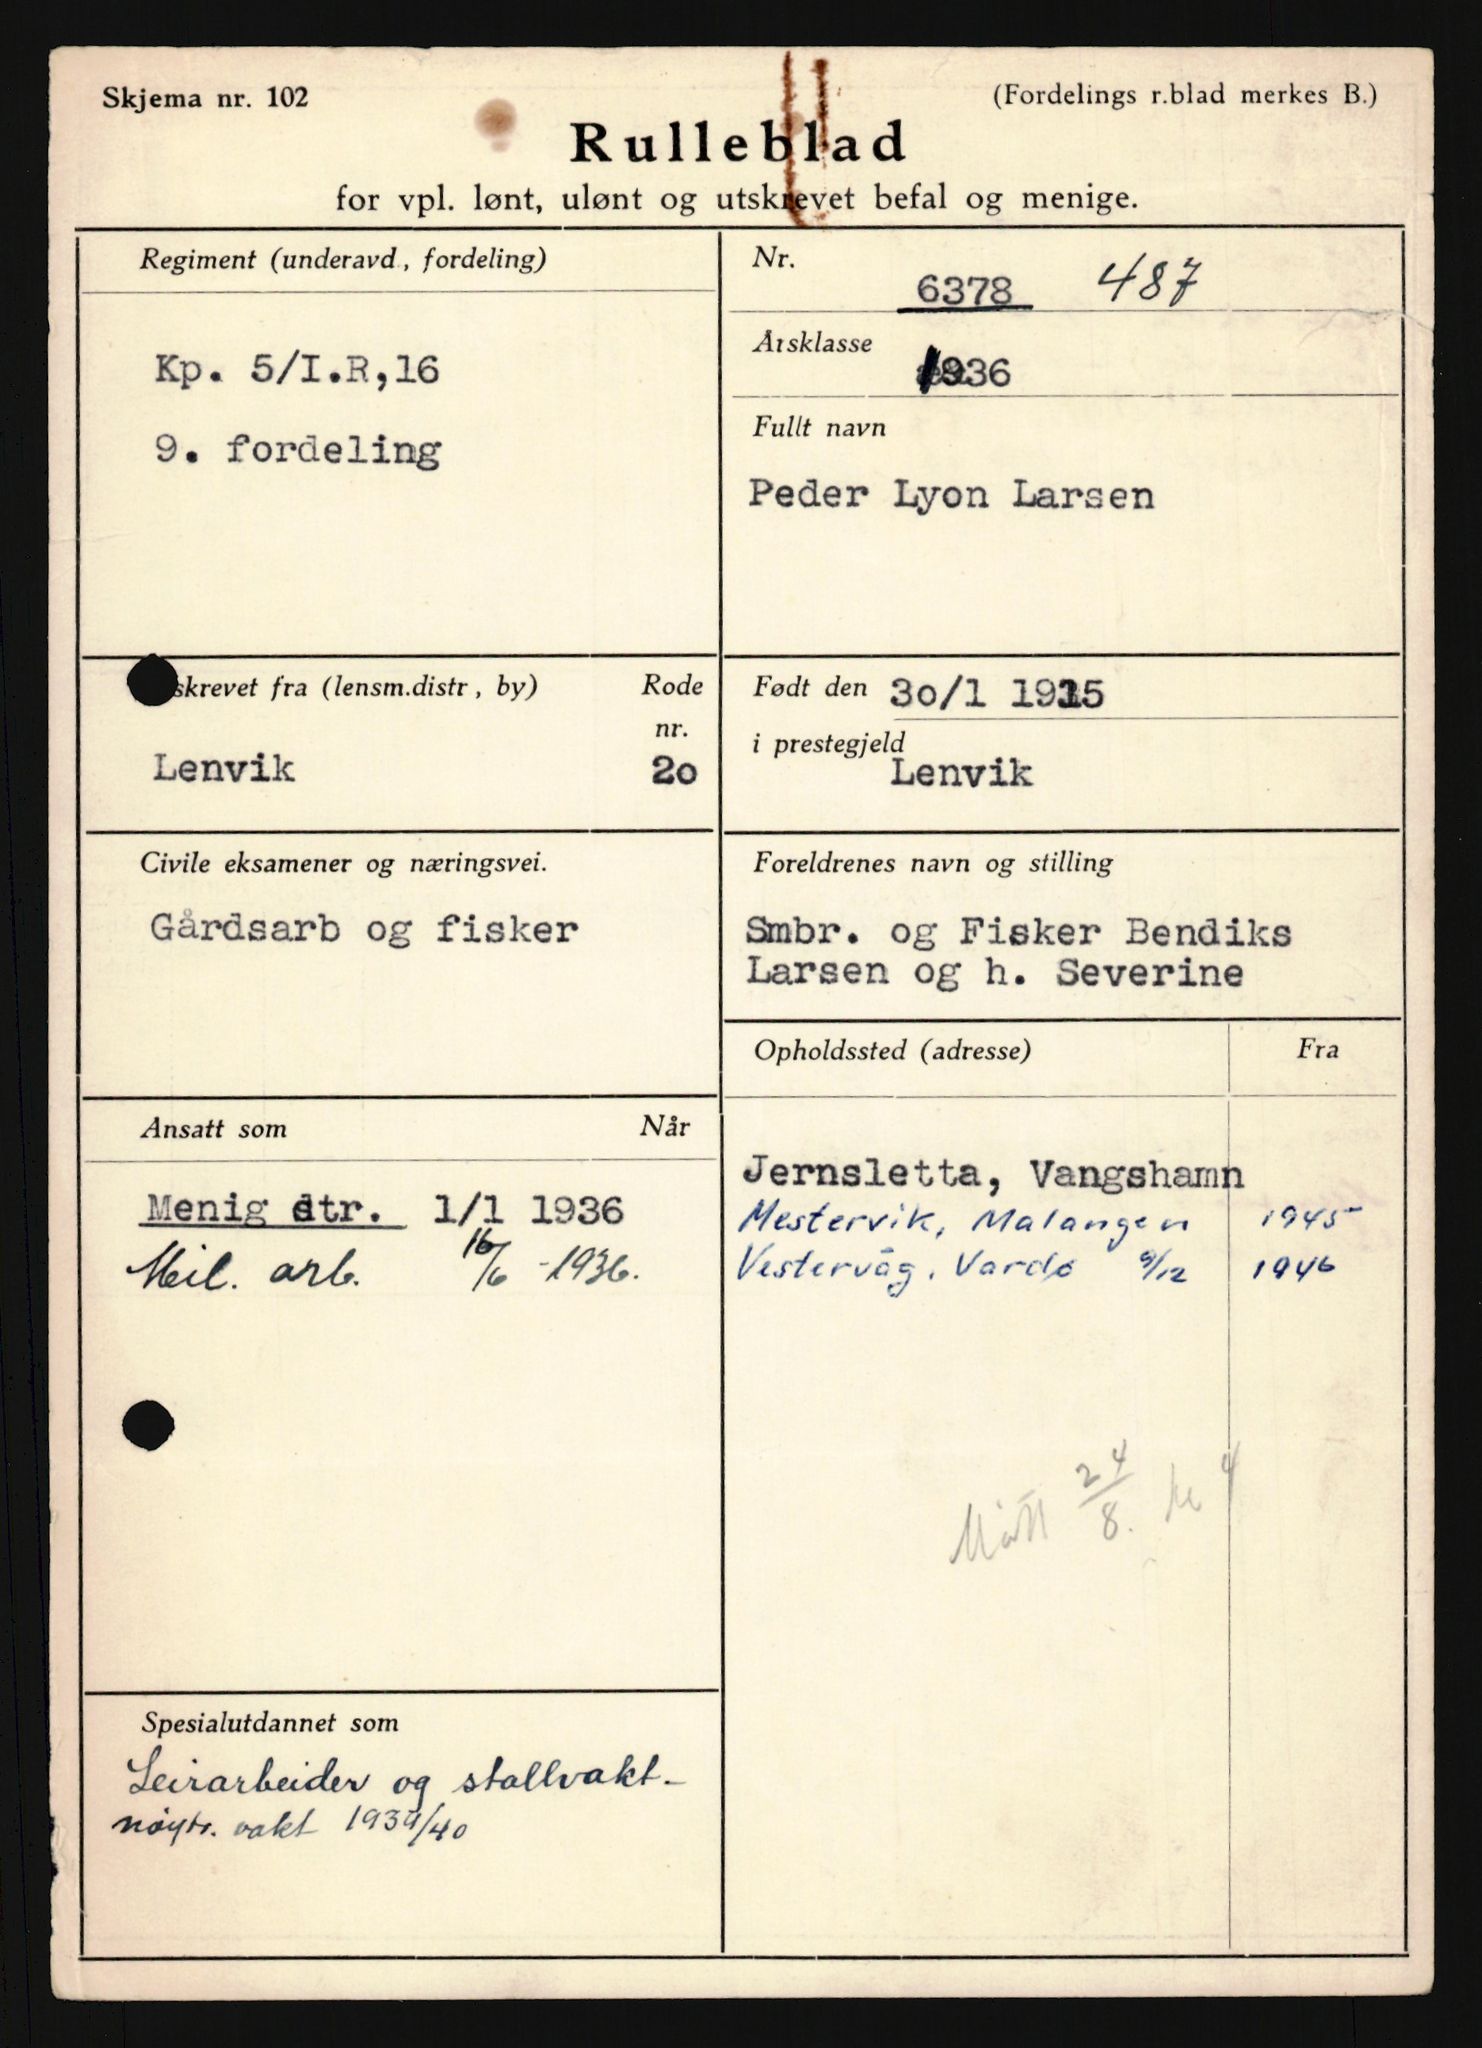 Skjema nr. 102
(Fordelings r.blad merkes B.)
Rulleblad
for vpl. lønt, ulønt og utskrevet befal og menige.
Regiment (underavd., fordeling)
Kp. 5/I.R,16
9. fordeling
Nr.
6378 487
Årsklasse
1936
Fullt navn
Peder Lyon Larsen
skrevet fra (lensm.distr, by)
Rode
nr.
Lenvik
2o
Født den 3o/1 1915
i prestegjeld
Lenvik
Civile eksamener og næringsvei.
Gårdsarb og fisker
Foreldrenes navn og stilling
Smbr. og Fisker Bendiks
Larsen og h. Severine
Ansatt som
Når
Menig str. 1/1 1936
Mil. arb. 16/6 - 1936.
Opholdssted (adresse)
Fra
Jernsletta, Vangshamn
Mestervik, Malangen 1945
Vestervåg, Vardø 9/12 1946
Møtt 24/8. kl 4
Spesialutdannet som
Leirarbeider og stallvakt-
nøytr. vakt 1939/40